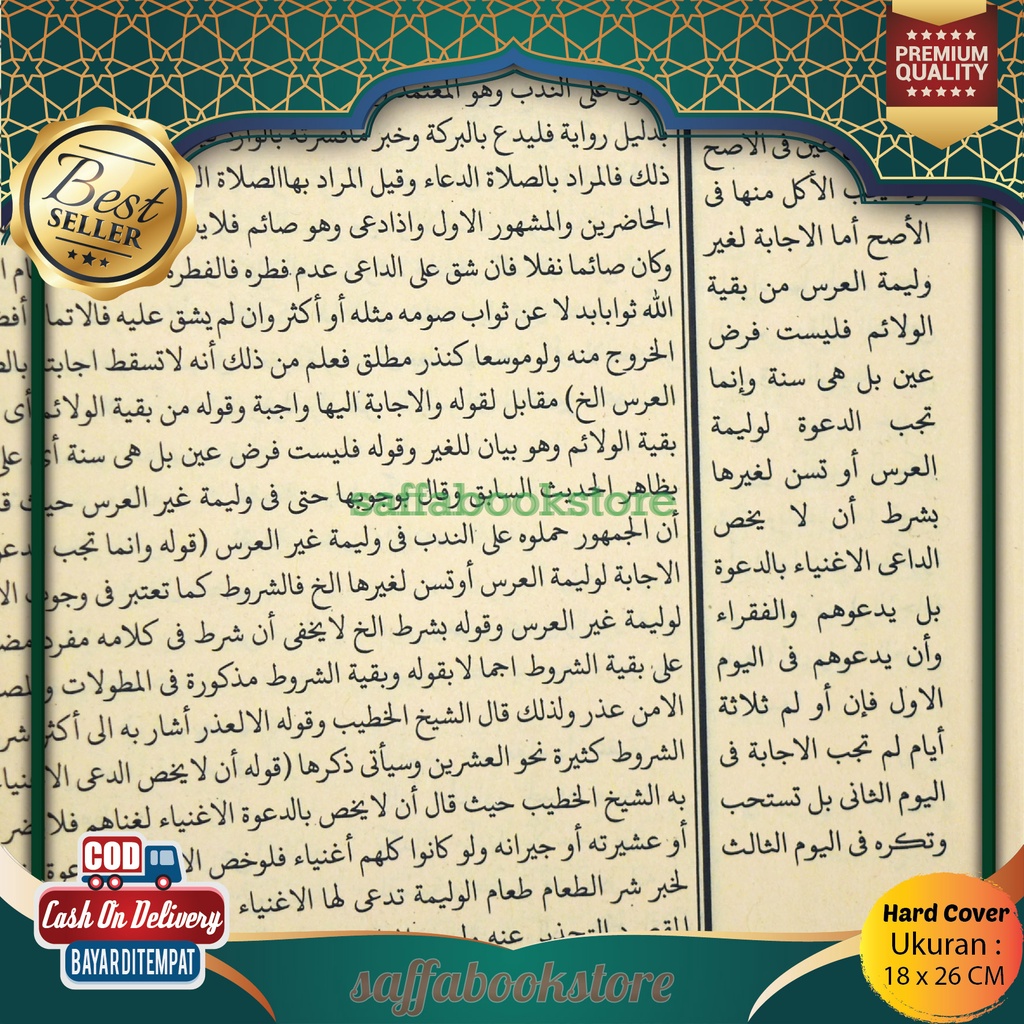 PREMIUM
QUALITY
Best
SELLER
عين فى الاصح
الأكل منها فى
الأصح أما الاجابة لغير
وليمة العرس من بقية
الولائم فليست فرض
عين بل هى سنة وإنما
تجب الدعوة لوليمة
العرس أو تسن لغيرها
بشرط أن لا يخص
الداعى الاغنياء بالدعوة
بل يدعوهم والفقراء
وأن يدعوهم فى اليوم
الاول فإن أو لم ثلاثة
أيام لم تجب الاجابة فى
اليوم الثانى بل تستحب
وتكره فى اليوم الثالث
على الندب وهو المعتمد
بدليل رواية فليدع بالبركة وخبر
ذلك فالمراد بالصلاة الدعاء وقيل المراد بهاالصلاة
الحاضرين والمشهور الاول واذادعى وهو صائم
وكان صائما نفلا فان شق على الداعى عدم فطره فالفطر
الله ثوابابد لا عن ثواب صومه مثله أو أكثر وان لم يشق عليه فالاتمام
الخروج منه ولوموسعا كنذر مطلق فعلم من ذلك أنه لاتسقط اجابته
العرس الخ) مقابل لقوله والاجابة اليها واجبة وقوله من بقية الولائم أى
بقية الولائم وهو بيان للغير وقوله فليست فرض عين بل هى سنة أى على
بظاهر الحديث السابق وقال بوجوبها حتى فى وليمة غير العرس حيث
أن الجمهور حملوه على الندب فى وليمة غير العرس (قوله وانما تجب
الاجابة لوليمة العرس أوتسن لغيرها الخ فالشروط كما تعتبر فى وجوب
لوليمة غير العرس وقوله بشرط الخ لايخفى أن شرط فى كلامه مفرد
على بقية الشروط اجما لابقوله وبقية الشروط مذكورة فى المطولات
الامن عذر ولذلك قال الشيخ الخطيب وقوله الالعذر أشار به الى أكثر
الشروط كثيرة نحو العشرين وسيأتى ذكرها (قوله أن لايخص الدعى
به الشيخ الخطيب حيث قال أن لايخص بالدعوة الاغنياء لغناهم
أو عشيرته أو جيرانه ولو كانوا كلهم أغنياء فلوخص
لخبر شر الطعام طعام الوليمة تدعى لها الاغنياء
saffabookstore
COD
Cash On Delivery
BAYAR DITEMPAT
saffabookstore
Hard Cover
Ukuran :
18 x 26 CM